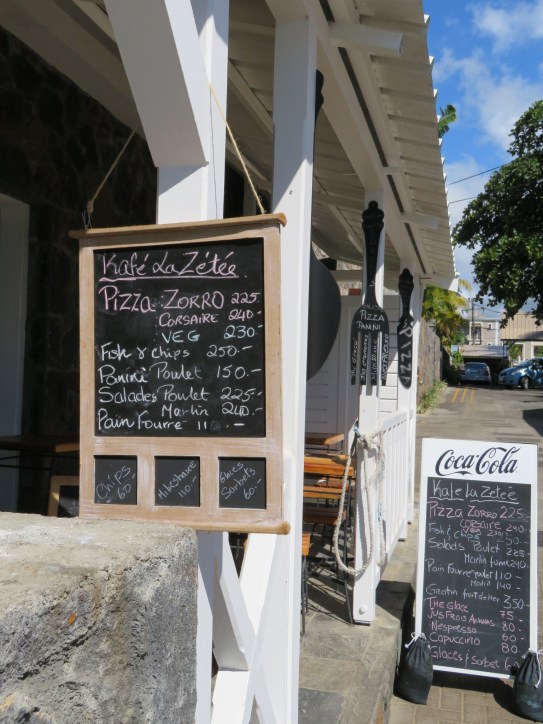 Kafé La Zétée
PIZZA: ZORRO 225.-
CORSAIRE 240.-
VEG 230.-
Fish & chips 250.-
Panini Poulet 150.-
Salades Poulet 225.-
Marlin 240.-
Pain Fourré 110.-
Chips 60.-
Milkshake 110.-
Glaces Sorbets 60.-
PIZZA
PANINI
Coca-Cola
Kafe La Zétée
Pizza Zorro 225.-
Corsaire 240.-
Veg 230.-
Fish & chips
Salads Poulet 225.-
Marlin fumé 240.-
Pain Fourré poulet 110.-
Marlin 140.-
Gratin fruit de mer 350.-
The Glacé 75
Jus Frais Ananas 80
Nespresso 60
Capuccino 80
Glaces / Sorbet